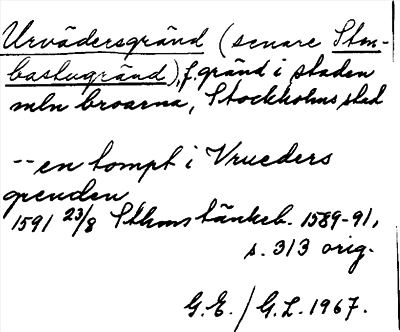 Urvädersgränd (senare Stm-
bastugränd), f. gränd i staden
mln broarna, Stockholms stad
-- en tompt i Vrueders
grenden
1591 23/8 Sthms tänkeb. 1589-91,
s. 313 orig.
G.E. / G.L. 1967.